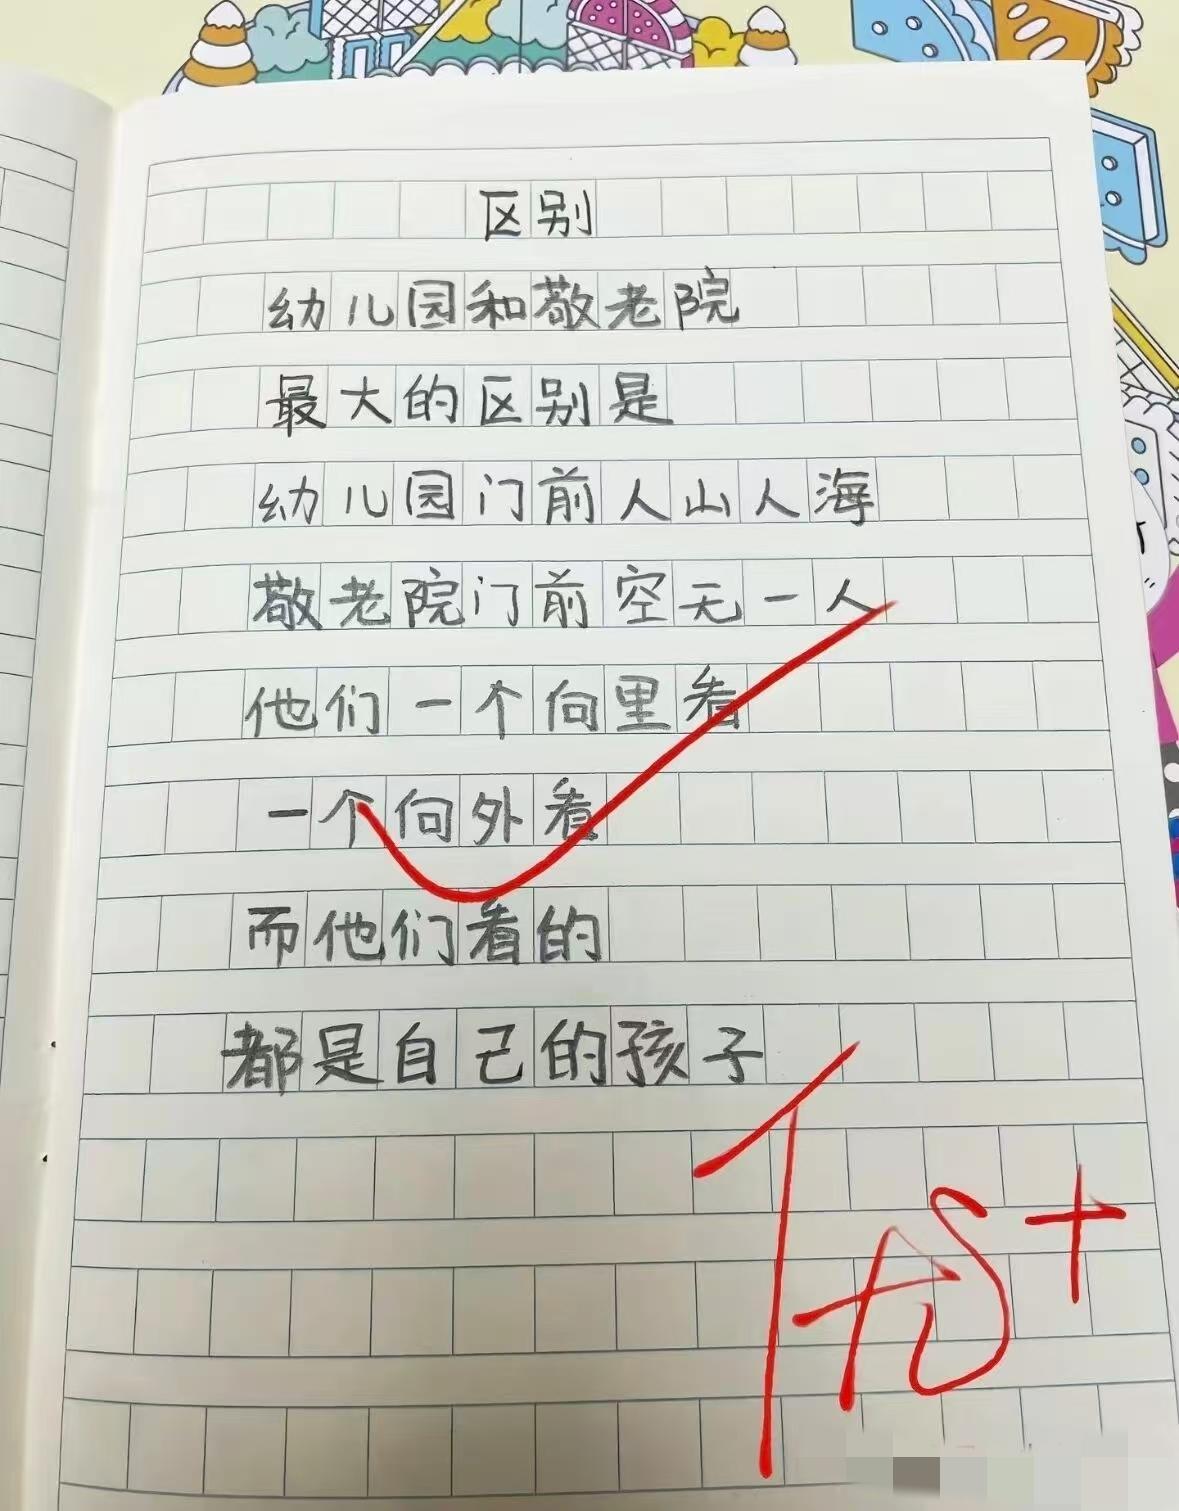 区别
幼儿园和敬老院
最大的区别是
幼儿园门前人山人海
敬老院门前空无一人
他们一个向里看
一个向外看
而他们看的
都是自己的孩子